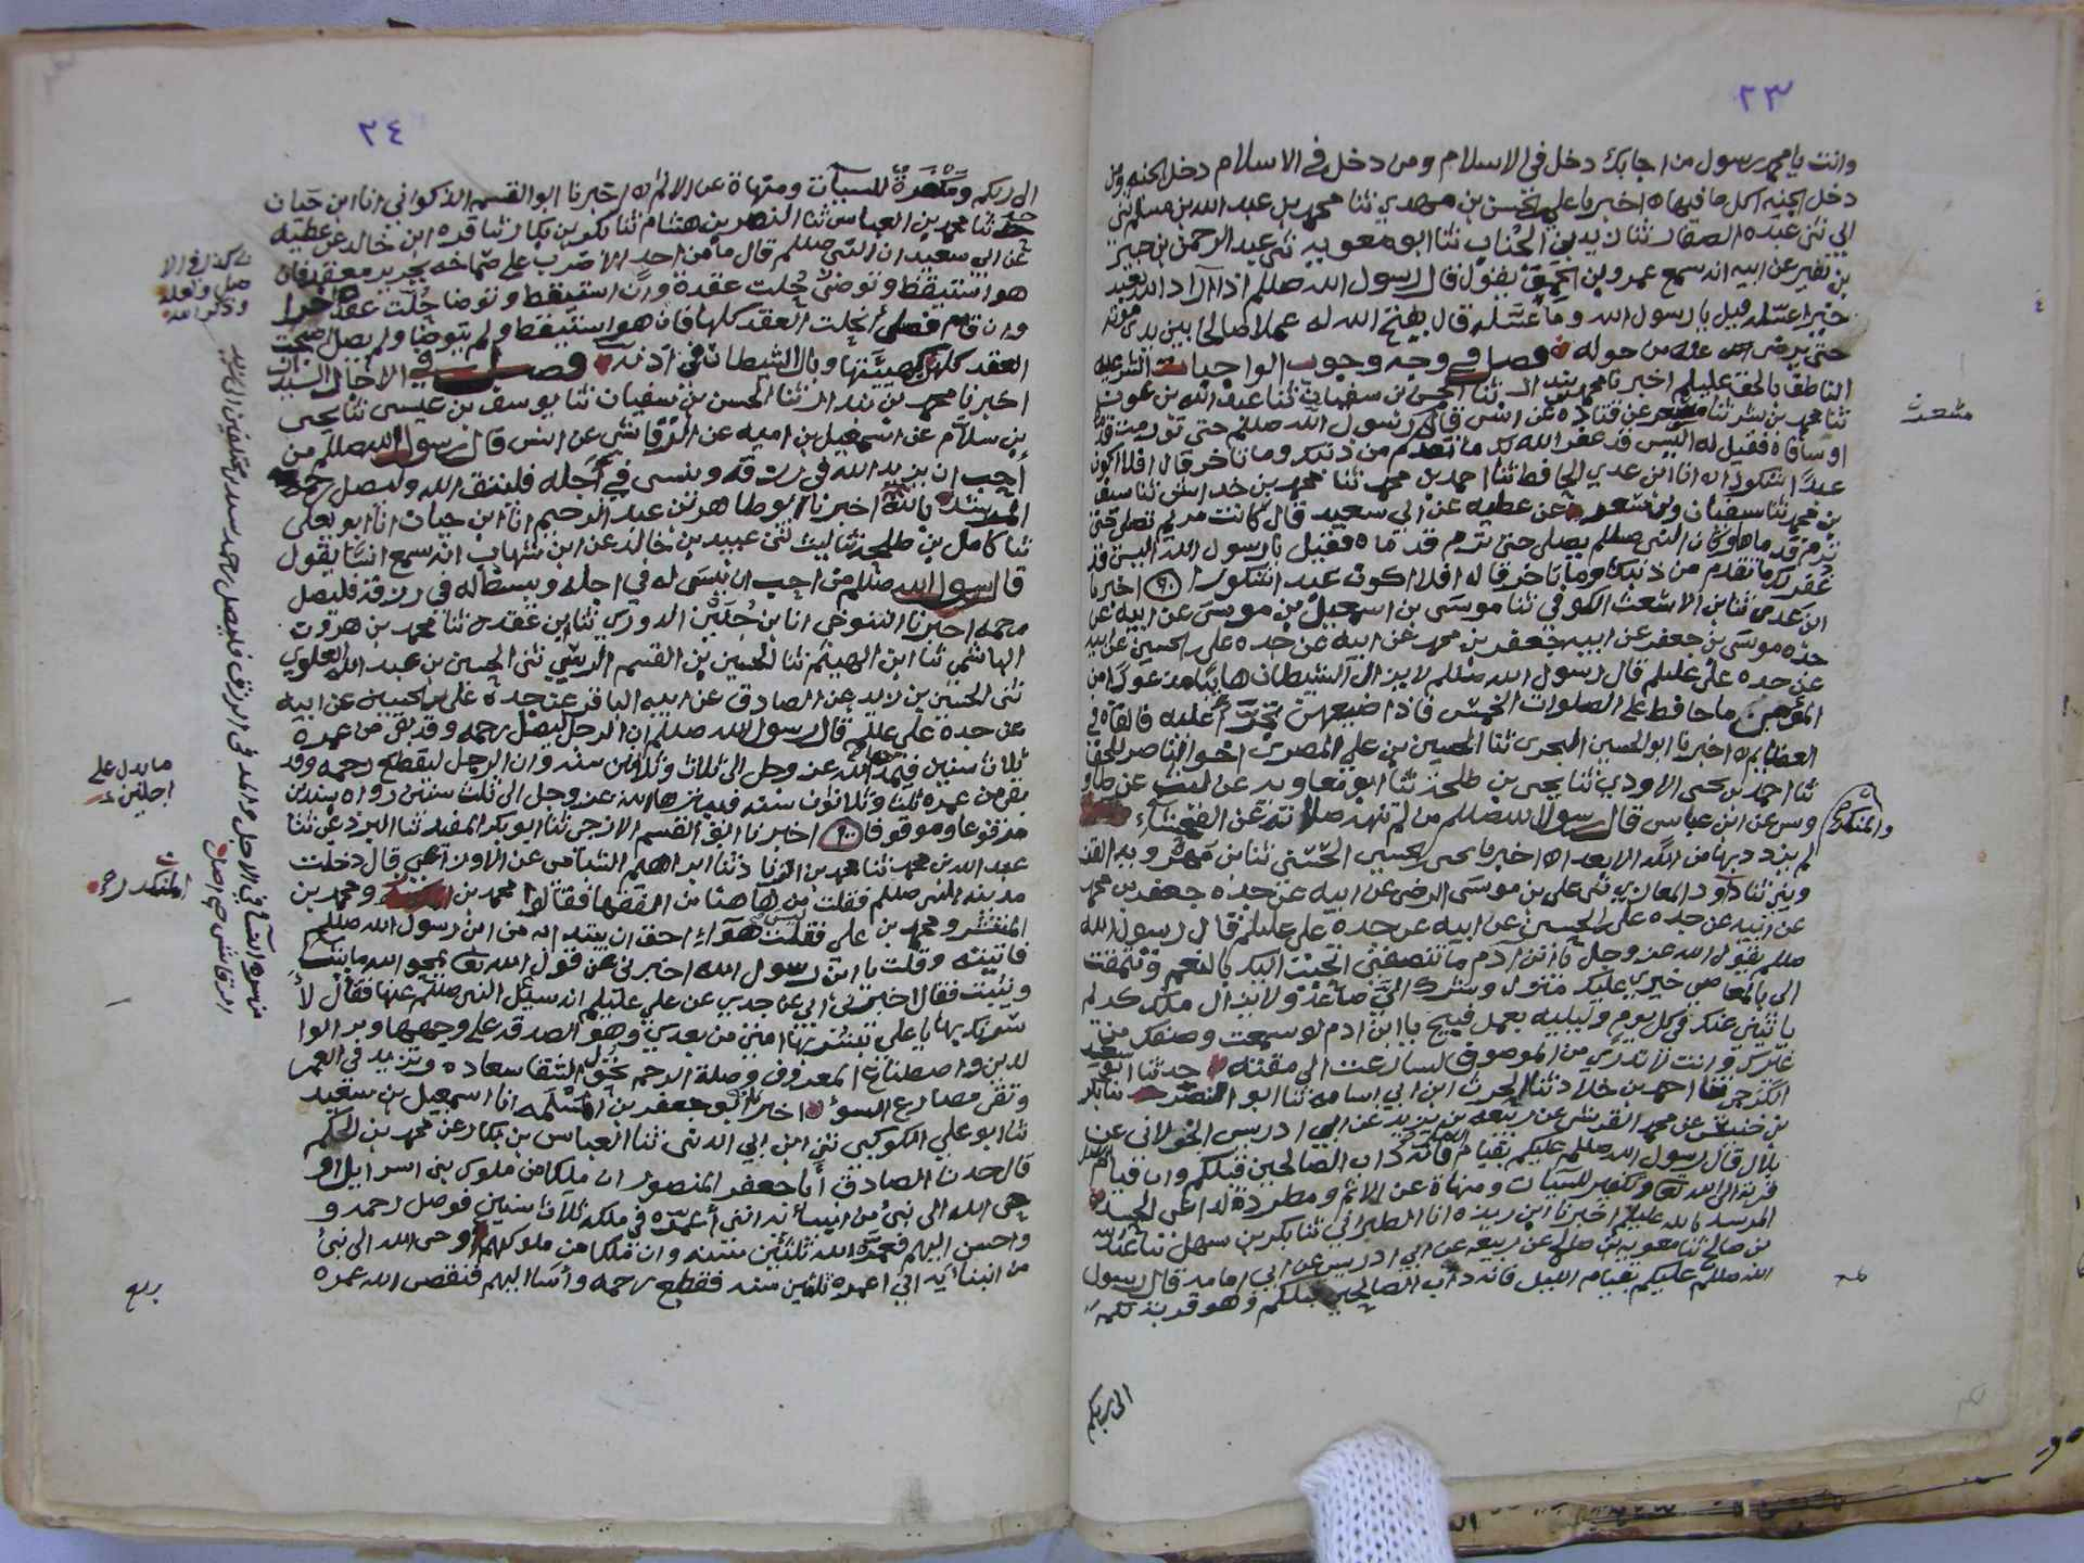 ٢٣
وانت يا محمد رسول من اجابك دخل في الاسلام ومن دخل في الاسلام دخل الجنه ومن
دخل الجنه اكل ما فيها اخبرنا علي بن مهدي ثنا محمد بن عبد الله بن مسلم
ابي ثنى عبده الصفار ثنا زيد بن الحباب ثنا ابو معويه ثنى عبد الرحمن بن جبير
بن نفير عن ابيه انه سمع عمرو بن الحمق يقول قال رسول الله صللم اذا اراد الله بعبد
خيرا عسله قيل يا رسول الله وما عسله قال يفتح الله له عملا صالحا بين يدي موته
حتى يرضى عنه من حوله فصل في وجه وجوب الواجبات الشرعيه
الناطق بالحق عليلم اخبرنا محمد بن بندار ثنا الحسن بن سفيان ثنا عبد الله بن عون
ثنا محمد بن بشر ثنا مسعر عن قتاده عن انس قال كان رسول الله صللم حتى تورمت قدماه
او ساقاه فقيل له اليس قد غفر الله لك ما تقدم من ذنبك وما تاخر قال افلا اكون
عبدا شكورا انا ابن عدي الحافظ ثنا احمد بن محمد ثنا محمد بن خداش ثنا سيف
بن محمد ثنا سفيان ومسعر عن عطيه عن ابي سعيد قال
ترم قدماه وكان النبي صللم يصلي حتى ترم قدماه فقيل يا رسول الله اليس قد
غفر لك ما تقدم من ذنبك وما تاخر قال افلا اكون عبدا شكورا اخبرنا
ابن عدي ثنا ابن الاشعث الكوفي ثنا موسى بن اسمعيل بن موسى عن ابيه عن
جده موسى بن جعفر عن ابيه جعفر بن محمد عن ابيه عن جده علي بن الحسين عن ابيه
عن جده علي عليلم قال رسول الله صللم لا يزال الشيطان هائبا مذعورا من
المؤمن ما حافظ على الصلوات الخمس فاذا ضيعهن تجرّأ عليه فالقاه في
العظائم اخبرنا ابو الحسين البحري ثنا الحسين بن علي المصري اخو الناصر للحق
ثنا احمد بن يحيى الاودي ثنا يحيى بن طلحه ثنا ابو معاويه عن ليث عن طاو
وس عن ابن عباس قال رسول الله صللم من لم تنهه صلاته عن الفحشاء
لم يزدد بها من الله الا بعدا اخبرنا يحيى الحسيني ثنا بن مهرويه القز
ويني ثنا داود الغازي ثنى علي بن موسى الرضى عن ابيه عن جده جعفر بن محمد
عن ابيه عن جده علي بن الحسين عن ابيه عن جده علي عليلم قال رسول الله
صللم يقول الله عز وجل يا ابن ادم ما تنصفني اتحبب اليك بالنعم وتتمقت
الي بالمعاصي خيري عليك منزول وشرك الي صاعد ولا يزال ملك كريم
ياتيني عنك في كل يوم وليله بعمل قبيح يا ابن ادم لو سمعت وصفك من
غيرك وانت لا تدري من الموصوف لسارعت الى مقته حدثنا ابو سعيد
احمد بن خلاد ثنا الحرث ابن ابي اسامه ثنا ابو النضر ثنا بكر
بن خنيس عن محمد القرشي عن ربيعه بن يزيد عن ابي ادريس الخولاني عن
بلال قال رسول الله صللم عليكم بقيام الليل فانه داب الصالحين قبلكم وان قيام الليل
قربه الى الله تعا وتكفير للسيآت ومنهاة عن الاثم ومطردة للداء عن الجسد
المرشد بالله عليلم اخبرنا ابن ريذه انا الطبراني ثنا بكر بن سهل ثنا عبد الله
بن صالح ثنا معويه بن صالح عن ربيعه عن ابي ادريس عن ابي امامه قال رسول
الله صللم عليكم بقيام الليل فانه داب الصالحين قبلكم وهو قربة لكم
الى ربكم
والمنكر
٢٤
الى ربكم ومكفرة للسيآت ومنهاة عن الاثم اخبرنا ابو القسم الذكواني انا ابن حيان
ثنا محمد بن العباس ثنا النضر بن هشام ثنا بكر بن بكار ثنا قره ابن خالد عن عطيه
عن ابي سعيد ان النبي صللم قال ما من احد الا ضرب على صماخه بجرير معقد فان
هو استيقظ وتوضى حلت عقدة وان استيقظ وتوضا حلت عقد
وان قام فصلى انحلت العقد كلها فان هو استيقظ ولم يتوضا ولم يصل اصبحت
العقد كلها كهيئتها وبال الشيطان في اذنه فصل في الاجال
اخبرنا محمد بن بندار ثنا الحسن بن سفيان ثنا يوسف بن عيسى ثنا يحيى
بن سلام عن اسمعيل بن اميه عن الرقاشي عن انس قال رسول الله صللم من
احب ان يزيد الله في رزقه وينسي في أجله فليتق الله وليصل رحمه
المرشد بالله اخبرنا ابو طاهر بن عبد الرحيم انا ابن حيان انا ابو يعلى
ثنا كامل بن طلحه ثنا ليث ثنى عبيد بن خالد عن ابن شهاب انه سمع انسا يقول
قال رسول الله صللم من احب ان ينسى له في اجله ويبسط له في رزقه فليصل
رحمه اخبرنا التنوخي انا بن جلين الدوري ثنا ابن عقده ثنا محمد بن هرون
الهاشمي ثنا ابن الهيثم ثنا الحسين بن القسم الرسي ثنى الحسين بن عبد الله العلوي
ثنى الحسين بن زيد عن الصادق عن ابيه الباقر عن جده علي بن الحسين عن ابيه
عن جده علي عليلم قال رسول الله صللم ان الرجل ليصل رحمه وقد بقى من عمره
ثلاث سنين فيمدها الله عز وجل الى ثلاث وثلاثين سنه وان الرجل ليقطع رحمه وقد
بقى من عمره ثلث وثلاثون سنه فيبترها الله عز وجل الى ثلث سنين رواه
مرفوعا وموقوفا اخبرنا ابو القسم الازجي ثنا ابو بكر المفيد ثنا
عبد الله بن محمد ثنا محمد بن ثنا ابراهيم الشامي عن الاوزاعي قال دخلت
مدينه النبي صللم فقلت من هاهنا من الفقها فقالوا محمد بن ومحمد بن
المنتشر ومحمد بن علي فقلت هؤلاء احق ان يبتدا به من ابن رسول الله صللم
فاتيته وقلت يا ابن رسول الله اخبرني عن قول الله تعا يمحو الله ما يشا
ويثبت فقال اخبرني ابي عن جدي عن علي عليلم انه سئل النبي صللم عنها فقال لا
شرنك بها يا علي تبشر بها امتي من بعدي وهو الصدقه على وجهها وبر الوا
لدين واصطناع المعروف وصلة الرحم تحول الشقا سعاده وتزيد في العمر
وتقي مصارع السوء اخبرنا ابو جعفر بن المسلمه انا اسمعيل بن سعيد
ثنا ابو علي الكوكبي ثنى ابن ابي الدنيا ثنا العباس بن بكار عن محمد بن الحكم
قال حدث الصادق أبا جعفر المنصور ان ملكا من ملوك بني اسرايل او
حى الله الى نبي من انبيائه انني أعمره في ملكه ثلاث سنين فوصل رحمه و
واحسن اليهم فعمره الله ثلثين سنه وان ملكا من ملوكهم أوحى الله الى نبي
من انبيائه اني اعمره ثلثين سنه فقطع رحمه وأسا اليهم فنقص الله عمره
ما يدل على
اجلين
المنكدر